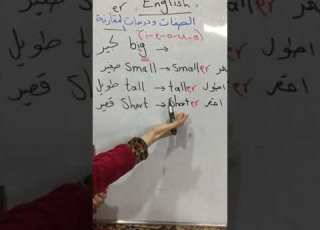 er English
الصفات ودرجات المقارنة
(i-e-o-u-a)
كبير big →
صغير Small → Smaller صغر
طويل tall → taller اطول
قصير Short → Shorter اقصر